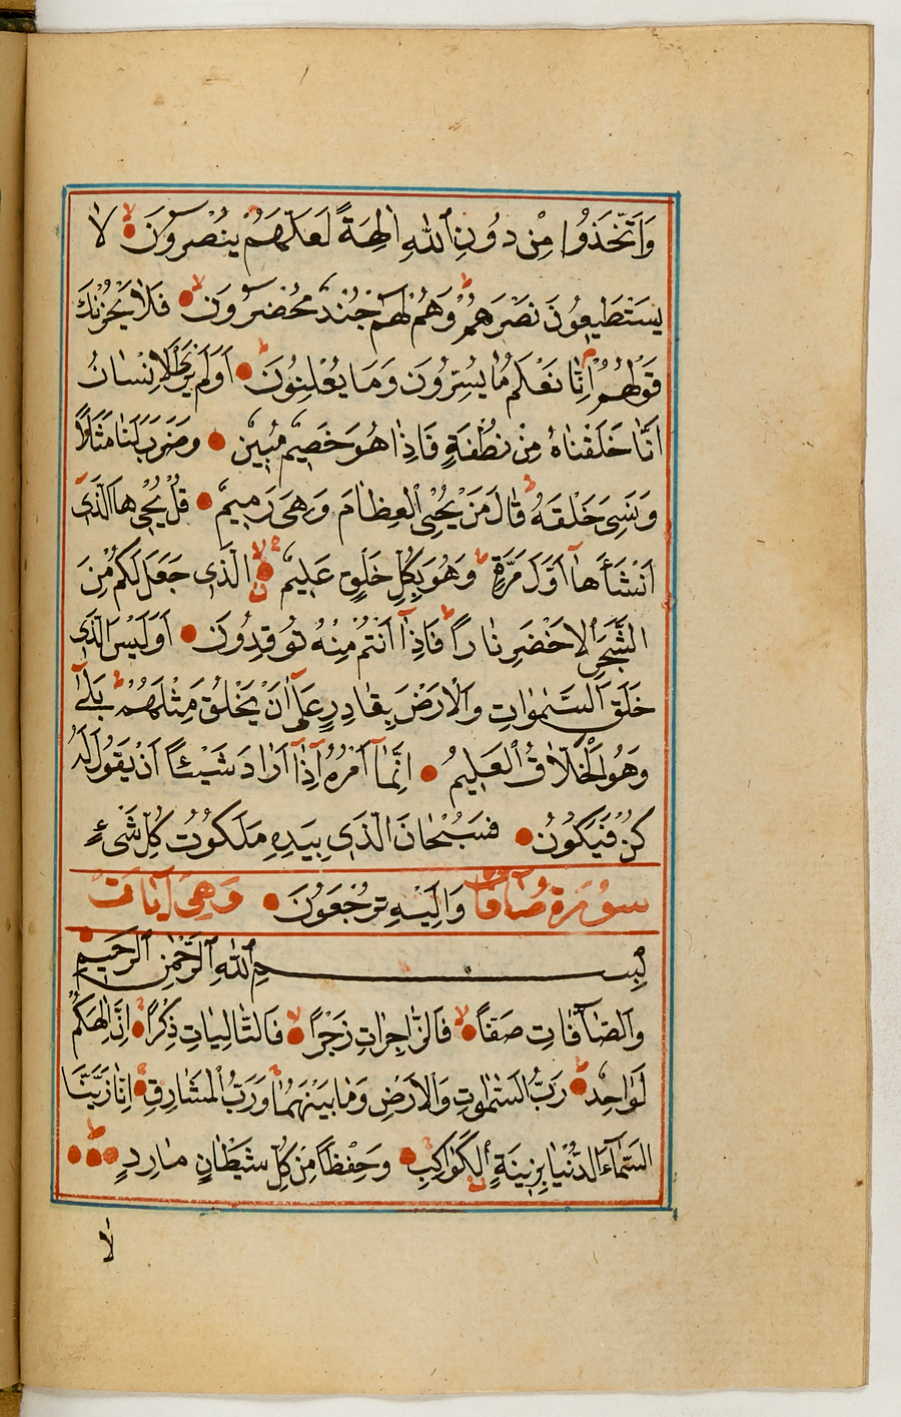 وَاتَّخَذُوا مِنْ دُونِ اللّٰهِ اٰلِهَةً لَعَلَّهُمْ يُنْصَرُونَ لَا
يَسْتَطِيعُونَ نَصْرَهُمْ وَهُمْ لَهُمْ جُنْدٌ مُحْضَرُونَ فَلَا يَحْزُنْكَ
قَوْلُهُمْ اِنَّا نَعْلَمُ مَا يُسِرُّونَ وَمَا يُعْلِنُونَ اَوَلَمْ يَرَ الْاِنْسَانُ
اَنَّا خَلَقْنَاهُ مِنْ نُطْفَةٍ فَاِذَا هُوَ خَصِيمٌ مُبِينٌ وَضَرَبَ لَنَا مَثَلًا
وَنَسِيَ خَلْقَهُ قَالَ مَنْ يُحْيِي الْعِظَامَ وَهِيَ رَمِيمٌ قُلْ يُحْيِيهَا الَّذِي
اَنْشَاَهَا اَوَّلَ مَرَّةٍ وَهُوَ بِكُلِّ خَلْقٍ عَلِيمٌ الَّذِي جَعَلَ لَكُمْ مِنَ
الشَّجَرِ الْاَخْضَرِ نَارًا فَاِذَا اَنْتُمْ مِنْهُ تُوقِدُونَ اَوَلَيْسَ الَّذِي
خَلَقَ السَّمٰوَاتِ وَالْاَرْضَ بِقَادِرٍ عَلٰى اَنْ يَخْلُقَ مِثْلَهُمْ بَلٰى
وَهُوَ الْخَلَّاقُ الْعَلِيمُ اِنَّمَا اَمْرُهُ اِذَا اَرَادَ شَيْئًا اَنْ يَقُولَ لَهُ
كُنْ فَيَكُونُ فَسُبْحَانَ الَّذِي بِيَدِهِ مَلَكُوتُ كُلِّ شَيْءٍ
سُورَة صافات وَاِلَيْهِ تُرْجَعُونَ وَهِيَ اٰيَات
بِسْمِ اللّٰهِ الرَّحْمٰنِ الرَّحِيمِ
وَالصَّافَّاتِ صَفًّا فَالزَّاجِرَاتِ زَجْرًا فَالتَّالِيَاتِ ذِكْرًا اِنَّ اِلٰهَكُمْ
لَوَاحِدٌ رَبُّ السَّمٰوَاتِ وَالْاَرْضِ وَمَا بَيْنَهُمَا وَرَبُّ الْمَشَارِقِ اِنَّا زَيَّنَّا
السَّمَاءَ الدُّنْيَا بِزِينَةٍ الْكَوَاكِبِ وَحِفْظًا مِنْ كُلِّ شَيْطَانٍ مَارِدٍ
لَا